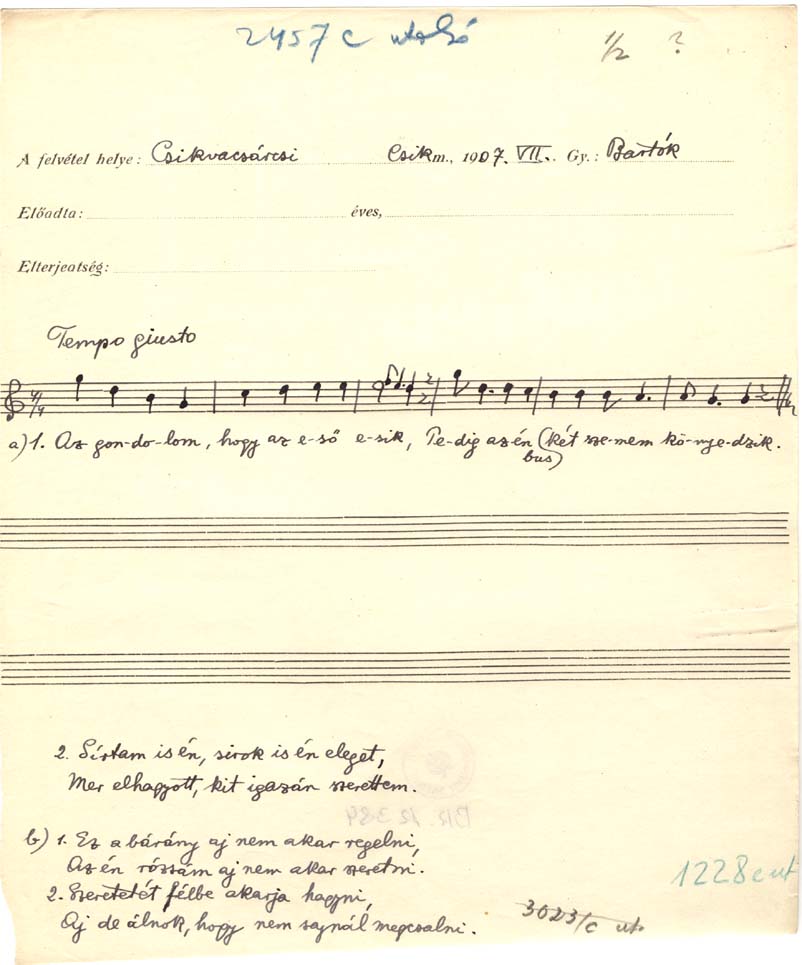 2457 c utolsó
1/2 ?
A felvétel helye: Csikvacsárcsi Csikm., 1907. VII. Gy.: Bartók
Előadta: éves,
Elterjeatség:
Tempo giusto
4/4
a) 1. Az gon-do-lom, hogy az e-ső e-sik, Pe-dig az én (két sze-mem kö-nye-dzik.
bus)
2. Sírtam is én, sirok is én eleget,
Mer elhagyott, kit igazán szerettem.
BR. 12384
b) 1. Ez a bárány aj nem akar legelni,
Az én rózsám aj nem akar szeretni.
2. Szeretetét félbe akarja hagyni,
Aj de álnok, hogy nem sajnál megcsalni.
1228 c ut
3023/c ut.